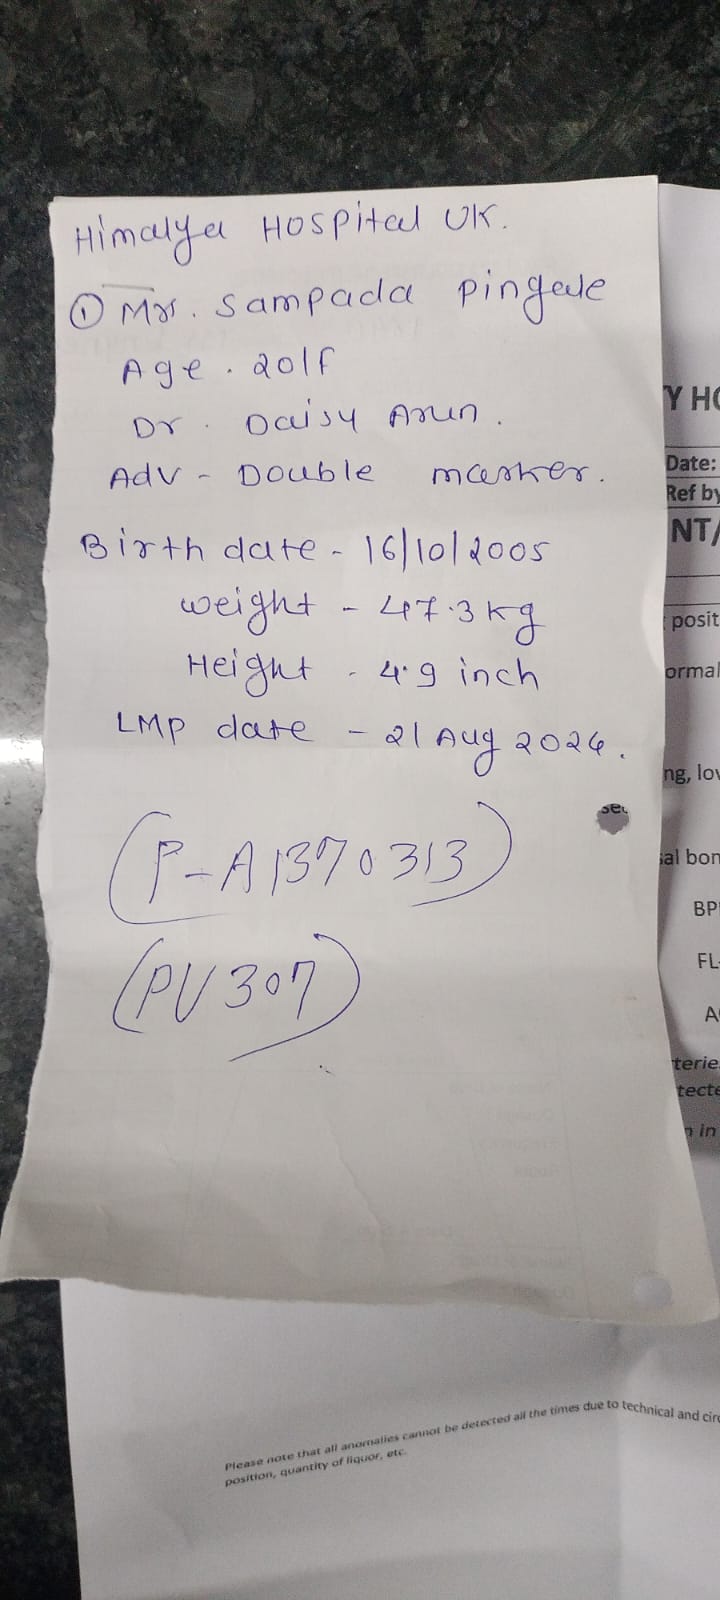 Himalya Hospital UK.
① Mrs. Sampada pingale
Age. 20/F
Dr. Daisy Arun.
Adv - Double marker.
Birth date - 16/10/2005
weight - 47.3 kg
Height - 4.9 inch
LMP date - 21 Aug 2026.
(P-A1370313)
(PU307)
Y HO
Date:
Ref by
NT/
posit
ormal
ng, lov
sal bon
BP
FL-
A
terie
tecte
n in
Please note that all anomalies cannot be detected all the times due to technical and circ
position, quantity of liquor, etc.